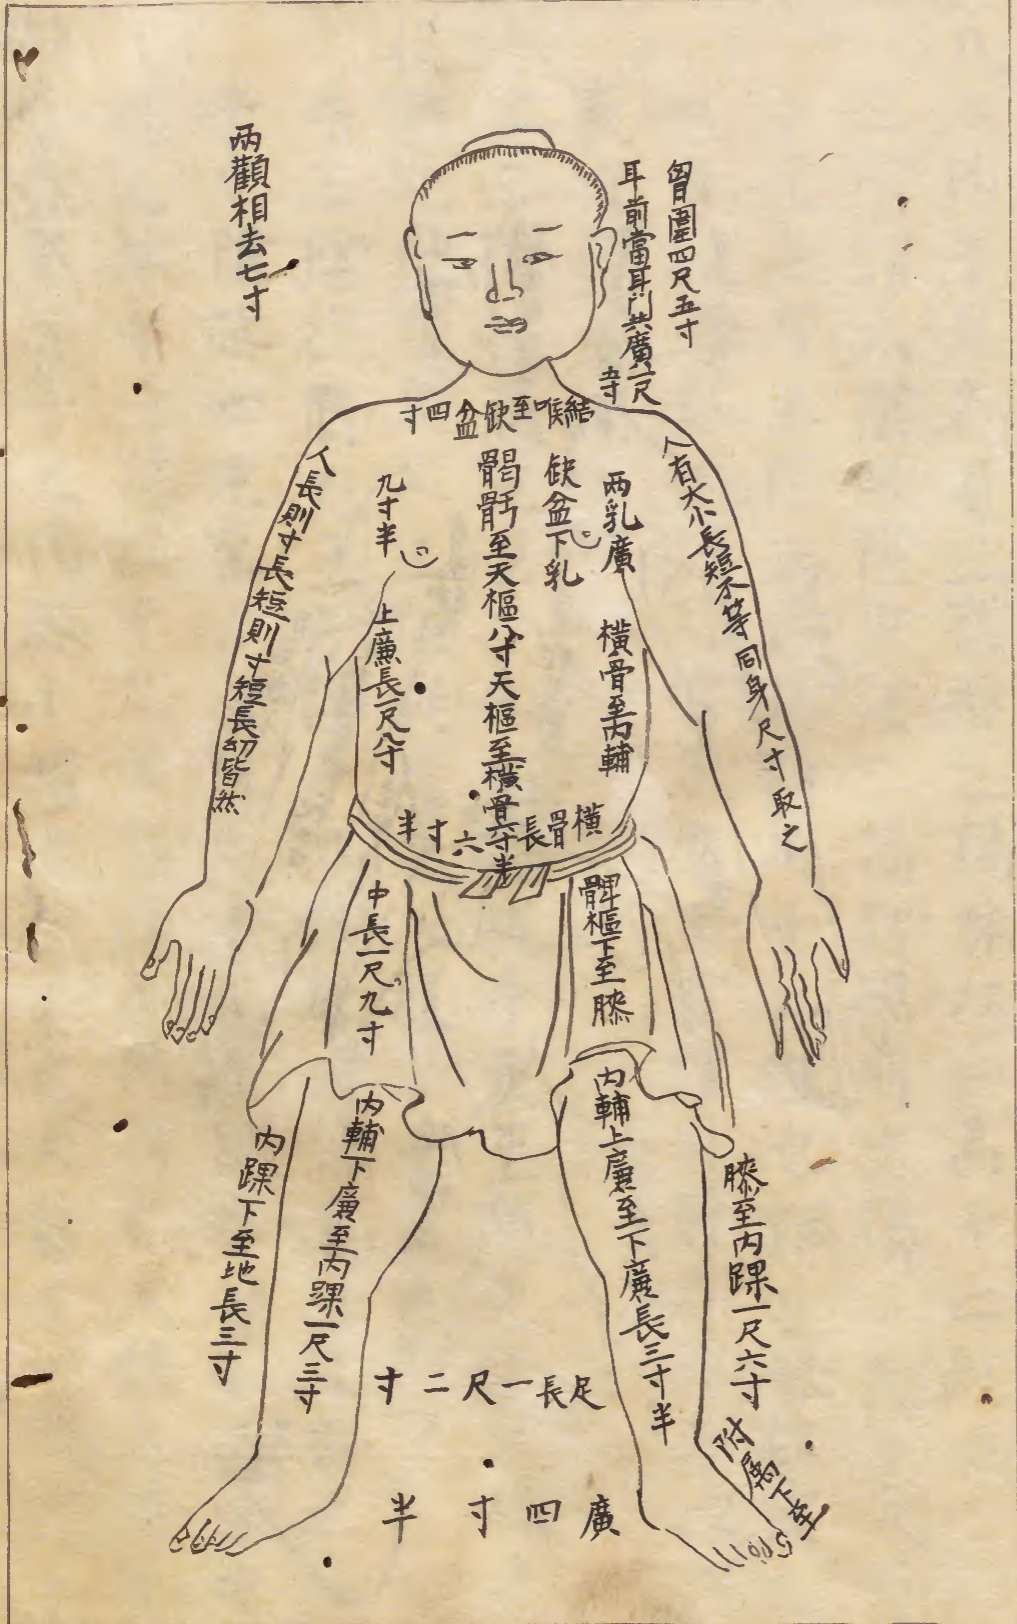 胷圍四尺五寸
耳前當耳門共廣一尺
寺
兩顴相去七寸
結喉至缺盆四寸
人有大小長短不等同身尺寸取之
兩乳廣
九寸半
缺盆下乳
𩩲骬至天樞八寸天樞至橫骨六寸半
橫骨至內輔
上廉長一尺八寸
人長則寸長短則寸短長幼皆然
橫骨長六寸半
髀樞下至膝
中長一尺九寸
內輔上廉至下廉長三寸半
內輔下廉至內踝一尺三寸
內踝下至地長三寸
膝至內踝一尺六寸
附屬下至
足長一尺二寸
廣四寸半